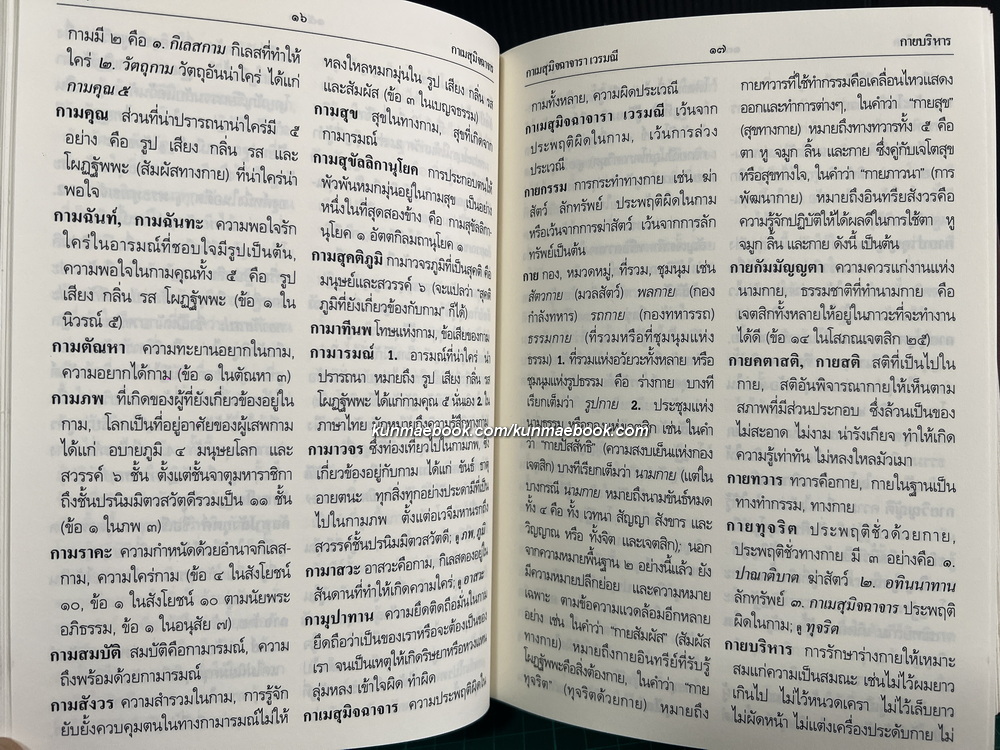 ๑๖
กาเมสุมิจฉาจาร
กามมี ๒ คือ ๑. กิเลสกาม กิเลสที่ทำให้
ใคร่ ๒. วัตถุกาม วัตถุอันน่าใคร่ ได้แก่
กามคุณ ๕
กามคุณ ส่วนที่น่าปรารถนาน่าใคร่มี ๕
อย่าง คือ รูป เสียง กลิ่น รส และ
โผฏฐัพพะ (สัมผัสทางกาย) ที่น่าใคร่น่า
พอใจ
กามฉันท์, กามฉันทะ ความพอใจรัก
ใคร่ในอารมณ์ที่ชอบใจมีรูปเป็นต้น,
ความพอใจในกามคุณทั้ง ๕ คือ รูป
เสียง กลิ่น รส โผฏฐัพพะ (ข้อ ๑ ใน
นิวรณ์ ๕)
กามตัณหา ความทะยานอยากในกาม,
ความอยากได้กาม (ข้อ ๑ ในตัณหา ๓)
กามภพ ที่เกิดของผู้ที่ยังเกี่ยวข้องอยู่ใน
กาม, โลกเป็นที่อยู่อาศัยของผู้เสพกาม
ได้แก่ อบายภูมิ ๔ มนุษยโลก และ
สวรรค์ ๖ ชั้น ตั้งแต่ชั้นจาตุมหาราชิกา
ถึงชั้นปรนิมมิตวสวัตดีรวมเป็น ๑๑ ชั้น
(ข้อ ๑ ในภพ ๓)
กามราคะ ความกำหนัดด้วยอำนาจกิเลส-
กาม, ความใคร่กาม (ข้อ ๔ ในสังโยชน์
๑๐, ข้อ ๑ ในสังโยชน์ ๑๐ ตามนัยพระ
อภิธรรม, ข้อ ๑ ในอนุสัย ๗)
กามสมบัติ สมบัติคือกามารมณ์, ความ
ถึงพร้อมด้วยกามารมณ์
กามสังวร ความสำรวมในกาม, การรู้จัก
ยับยั้งควบคุมตนในทางกามารมณ์ไม่ให้
หลงใหลหมกมุ่นใน รูป เสียง กลิ่น รส
และสัมผัส (ข้อ ๓ ในเบญจธรรม)
กามสุข สุขในทางกาม, สุขที่เกิดจาก
กามารมณ์
กามสุขัลลิกานุโยค การประกอบตนให้
พัวพันหมกมุ่นอยู่ในกามสุข เป็นอย่าง
หนึ่งในที่สุดสองข้าง คือ กามสุขัลลิกา-
นุโยค ๑ อัตตกิลมถานุโยค ๑
กามสุคติภูมิ กามาวจรภูมิที่เป็นสุคติ คือ
มนุษย์และสวรรค์ ๖ (จะแปลว่า "สุคติ
ภูมิที่ยังเกี่ยวข้องกับกาม" ก็ได้)
กามาทีนพ โทษแห่งกาม, ข้อเสียของกาม
กามารมณ์ 1. อารมณ์ที่น่าใคร่ น่า
ปรารถนา หมายถึง รูป เสียง กลิ่น รส
โผฏฐัพพะ ได้แก่กามคุณ ๕ นั่นเอง 2. ใน
ภาษาไทย มักหมายถึงความรู้สึกทางกาม
กามาวจร ซึ่งท่องเที่ยวไปในกามภพ, ซึ่ง
เกี่ยวข้องอยู่กับกาม ได้แก่ ขันธ์ ธาตุ
อายตนะ ทุกสิ่งทุกอย่างประดามีที่เป็น
ไปในกามภพ ตั้งแต่อเวจีมหานรกถึง
สวรรค์ชั้นปรนิมมิตวสวัตดี; ดู ภพ, ภูมิ
กามาสวะ อาสวะคือกาม, กิเลสดองอยู่ใน
สันดานที่ทำให้เกิดความใคร่; ดู อาสวะ
กามุปาทาน ความยึดติดถือมั่นในกาม
ยึดถือว่าเป็นของเราหรือจะต้องเป็นของ
เรา จนเป็นเหตุให้เกิดริษยาหรือหวงแหน
ลุ่มหลง เข้าใจผิด ทำผิด
กาเมสุมิจฉาจาร ความประพฤติผิดใน
กาเมสุมิจฉาจารา เวรมณี
๑๗
กายบริหาร
กามทั้งหลาย, ความผิดประเวณี
กาเมสุมิจฉาจารา เวรมณี เว้นจาก
ประพฤติผิดในกาม, เว้นการล่วง
ประเวณี
กายกรรม การกระทำทางกาย เช่น ฆ่า
สัตว์ ลักทรัพย์ ประพฤติผิดในกาม
หรือเว้นจากการฆ่าสัตว์ เว้นจากการลัก
ทรัพย์เป็นต้น
กาย กอง, หมวดหมู่, ที่รวม, ชุมนุม เช่น
สัตวกาย (มวลสัตว์) พลกาย (กอง
กำลังทหาร) รถกาย (กองทหารรถ)
ธรรมกาย (ที่รวมหรือที่ชุมนุมแห่ง
ธรรม) 1. ที่รวมแห่งอวัยวะทั้งหลาย หรือ
ชุมนุมแห่งรูปธรรม คือ ร่างกาย บางที
เรียกเต็มว่า รูปกาย 2. ประชุมแห่ง
นามธรรม หรือกองเจตสิก เช่น ในคำ
ว่า "กายปัสสัทธิ" (ความสงบเย็นแห่งกอง
เจตสิก) บางทีเรียกเต็มว่า นามกาย (แต่ใน
บางกรณี นามกาย หมายถึงนามขันธ์หมด
ทั้ง ๔ คือ ทั้ง เวทนา สัญญา สังขาร และ
วิญญาณ หรือ ทั้งจิต และเจตสิก); นอก
จากความหมายพื้นฐาน ๒ อย่างนี้แล้ว ยัง
มีความหมายปลีกย่อย และความหมาย
เฉพาะ ตามข้อความแวดล้อมอีกหลาย
อย่าง เช่น ในคำว่า "กายสัมผัส" (สัมผัส
ทางกาย) หมายถึงกายอินทรีย์ที่รับรู้
โผฏฐัพพะคือสิ่งต้องกาย, ในคำว่า "กาย
ทุจริต" (ทุจริตด้วยกาย) หมายถึง
กายทวารที่ใช้ทำกรรมคือเคลื่อนไหวแสดง
ออกและทำการต่างๆ, ในคำว่า "กายสุข"
(สุขทางกาย) หมายถึงทางทวารทั้ง ๕ คือ
ตา หู จมูก ลิ้น และกาย ซึ่งคู่กับเจโตสุข
หรือสุขทางใจ, ในคำว่า "กายภาวนา" (การ
พัฒนากาย) หมายถึงอินทรียสังวรคือ
ความรู้จักปฏิบัติให้ได้ผลดีในการใช้ตา หู
จมูก ลิ้น และกาย ดังนี้ เป็นต้น
กายกัมมัญญตา ความควรแก่งานแห่ง
นามกาย, ธรรมชาติที่ทำนามกาย คือ
เจตสิกทั้งหลายให้อยู่ในภาวะที่จะทำงาน
ได้ดี (ข้อ ๑๔ ในโสภณเจตสิก ๒๕)
กายคตาสติ, กายสติ สติที่เป็นไปใน
กาย, สติอันพิจารณากายให้เห็นตาม
สภาพที่มีส่วนประกอบ ซึ่งล้วนเป็นของ
ไม่สะอาด ไม่งาม น่ารังเกียจ ทำให้เกิด
ความรู้เท่าทัน ไม่หลงใหลมัวเมา
กายทวาร ทวารคือกาย, กายในฐานเป็น
ทางทำกรรม, ทางกาย
กายทุจริต ประพฤติชั่วด้วยกาย,
ประพฤติชั่วทางกาย มี ๓ อย่างคือ ๑.
ปาณาติบาต ฆ่าสัตว์ ๒. อทินนาทาน
ลักทรัพย์ ๓. กาเมสุมิจฉาจาร ประพฤติ
ผิดในกาม; ดู ทุจริต
กายบริหาร การรักษาร่างกายให้เหมาะ
สมแก่ความเป็นสมณะ เช่นไม่ไว้ผมยาว
เกินไป ไม่ไว้หนวดเครา ไม่ไว้เล็บยาว
ไม่ผัดหน้า ไม่แต่งเครื่องประดับกาย ไม่
kunmaebook.com/kunmaebook.com